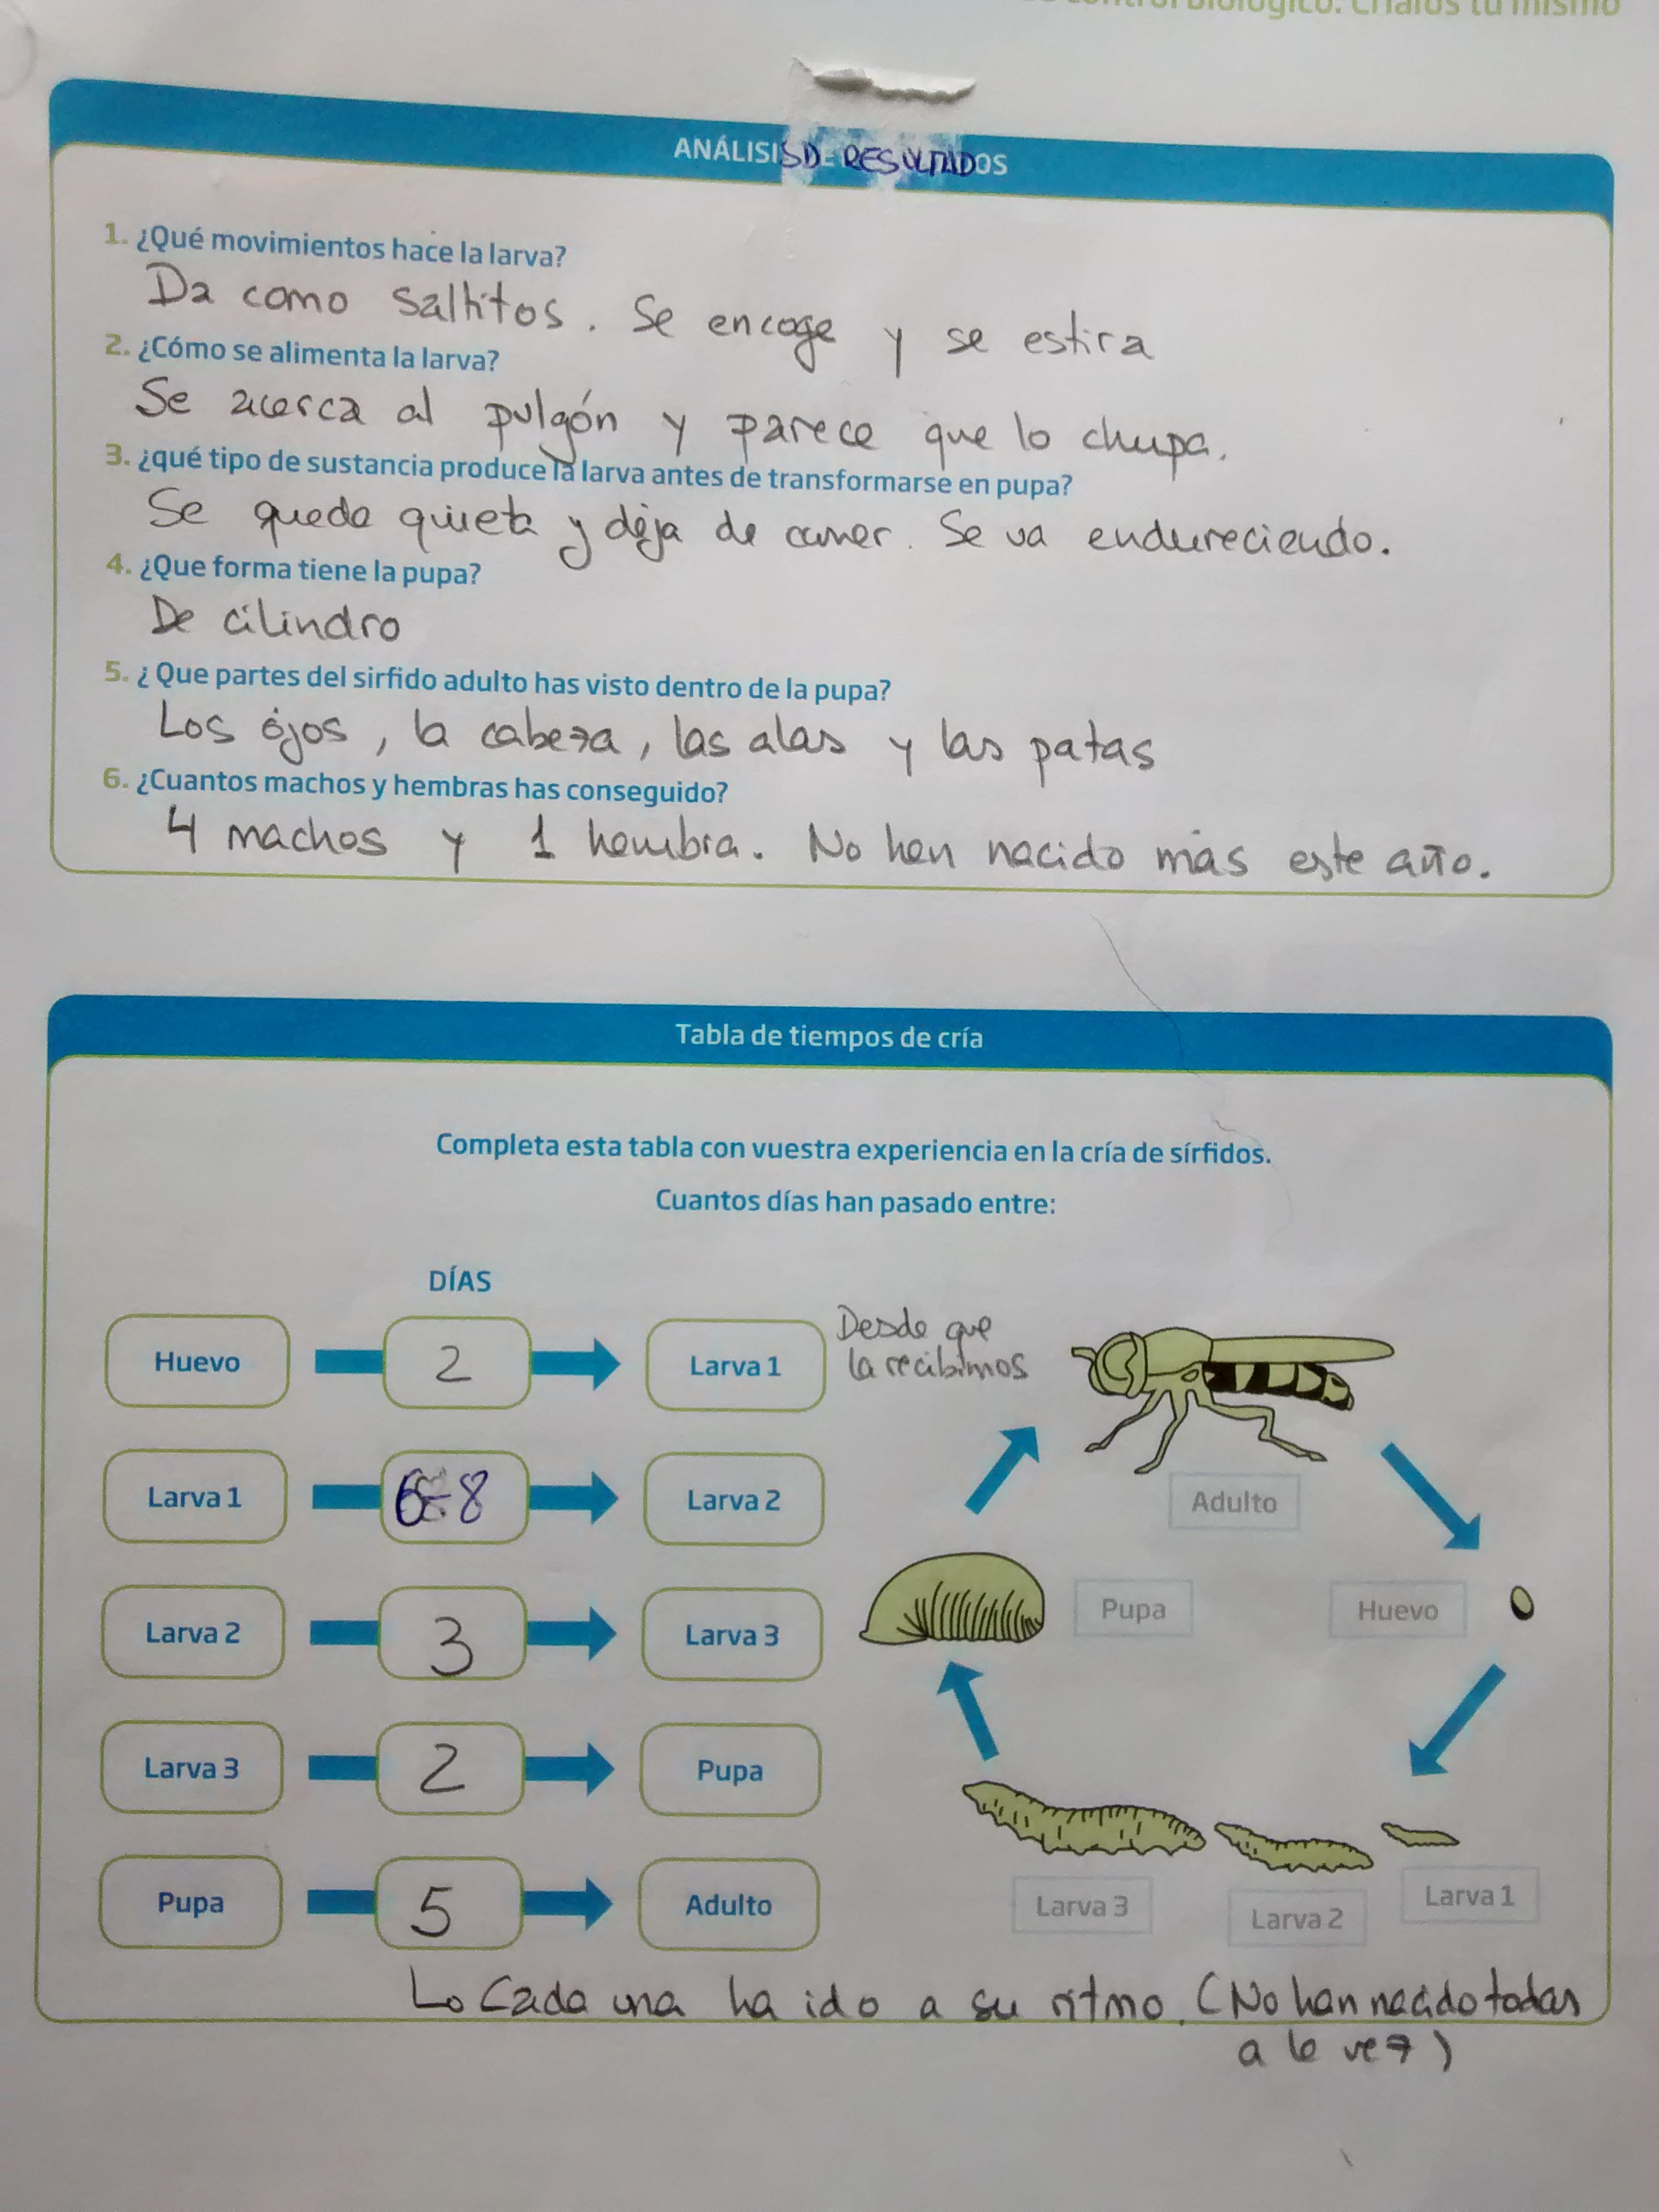 control biológico. Críalos tú mismo
ANÁLISIS DE RESULTADOS
1. ¿Qué movimientos hace la larva?
Da como saltitos. Se encoge y se estira
2. ¿Cómo se alimenta la larva?
Se acerca al pulgón y parece que lo chupa.
3. ¿qué tipo de sustancia produce la larva antes de transformarse en pupa?
Se queda quieta y deja de comer. Se va endureciendo.
4. ¿Que forma tiene la pupa?
De cilindro
5. ¿ Que partes del sirfido adulto has visto dentro de la pupa?
Los ojos, la cabeza, las alas y las patas
6. ¿Cuantos machos y hembras has conseguido?
4 machos y 1 hembra. No han nacido más este año.
Tabla de tiempos de cría
Completa esta tabla con vuestra experiencia en la cría de sírfidos.
Cuantos días han pasado entre:
DÍAS
Huevo 2 Larva 1
Desde que
la recibimos
Larva 1 6-8 Larva 2
Larva 2 3 Larva 3
Larva 3 2 Pupa
Pupa 5 Adulto
Adulto
Pupa
Huevo
Larva 3
Larva 2
Larva 1
Cada una ha ido a su ritmo. (No han nacido todas
a la vez)